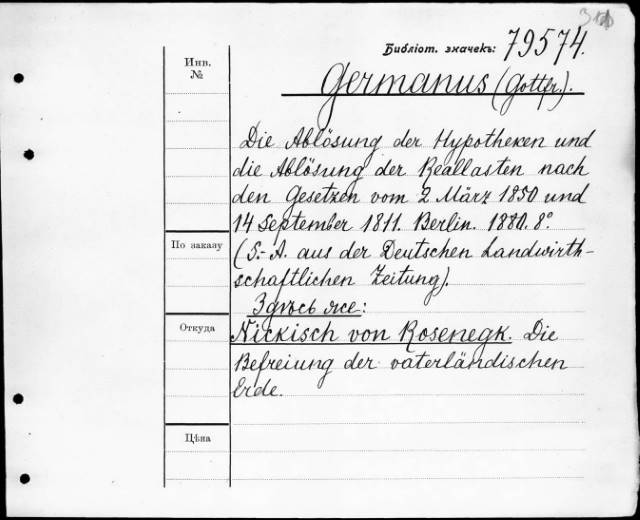 Библіот. значекъ: 79574.
Инв.
№
Germanus (Gottfr.).
Die Ablösung der Hypotheken und
die Ablösung der Reallasten nach
den Gesetzen vom 2 März 1850 und
14 September 1811. Berlin. 1880. 8°.
По заказу
(S.-A. aus der Deutschen Landwirth-
schaftlichen Zeitung).
Здѣсь же:
Откуда
Nickisch von Rosenegk. Die
Befreiung der vaterländischen
Erde.
Цѣна